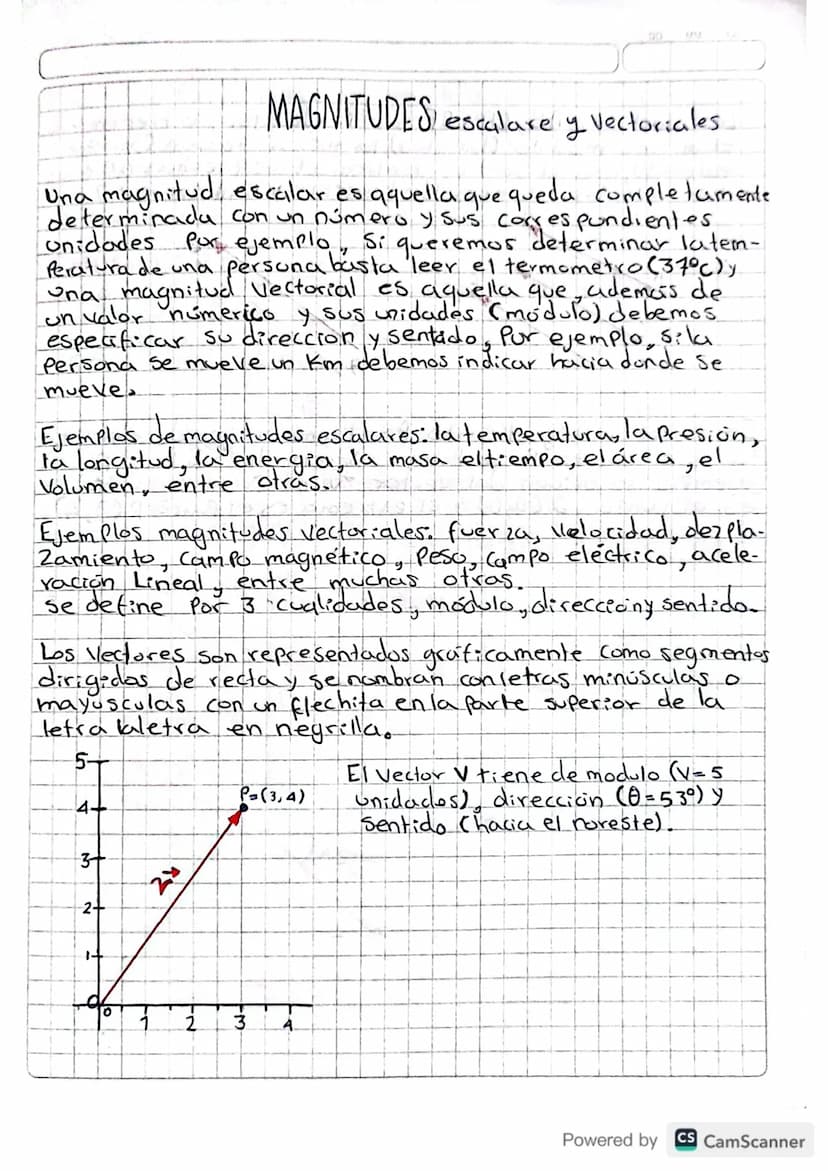 MAGNITUDES escalare y vectoriales
Una magnitud escalar es aquella que queda completamente
determinada con un número y sus correspondientes
unidades Por ejemplo, si queremos determinar la tem-
peratura de una persona basta leer el termometro (37°c) y
una magnitud Vectorial es aquella que, además de
un valor númerico y sus unidades (módulo) debemos
especificar su direccion y sentido, Por ejemplo, si la
Persona se mueve un Km debemos indicar hacia donde se
mueve.
Ejemplos de magnitudes escalares: la temperatura, la Presión,
la longitud, la energía, la masa el tiempo, el área, el
Volumen, entre otras.
Ejemplos magnitudes vectoriales: fuerza, velocidad, dezpla-
zamiento, campo magnético, Peso, campo eléctrico, acele-
ración Lineal, entre muchas otras.
se define Por 3 cualidades, módulo, dirección y sentido.
Los Vectores son representados gráficamente como segmentos
dirigidos de recta y se nombran con letras minúsculas o
mayúsculas con un flechita en la parte superior de la
letra la letra en negrilla.
El vector V tiene de modulo (V=5
unidades), dirección (θ=53°) y
sentido (hacia el noreste).
5
P=(3,4)
4
3
v
2
1
0
0 1 2 3 4
Powered by CS CamScanner